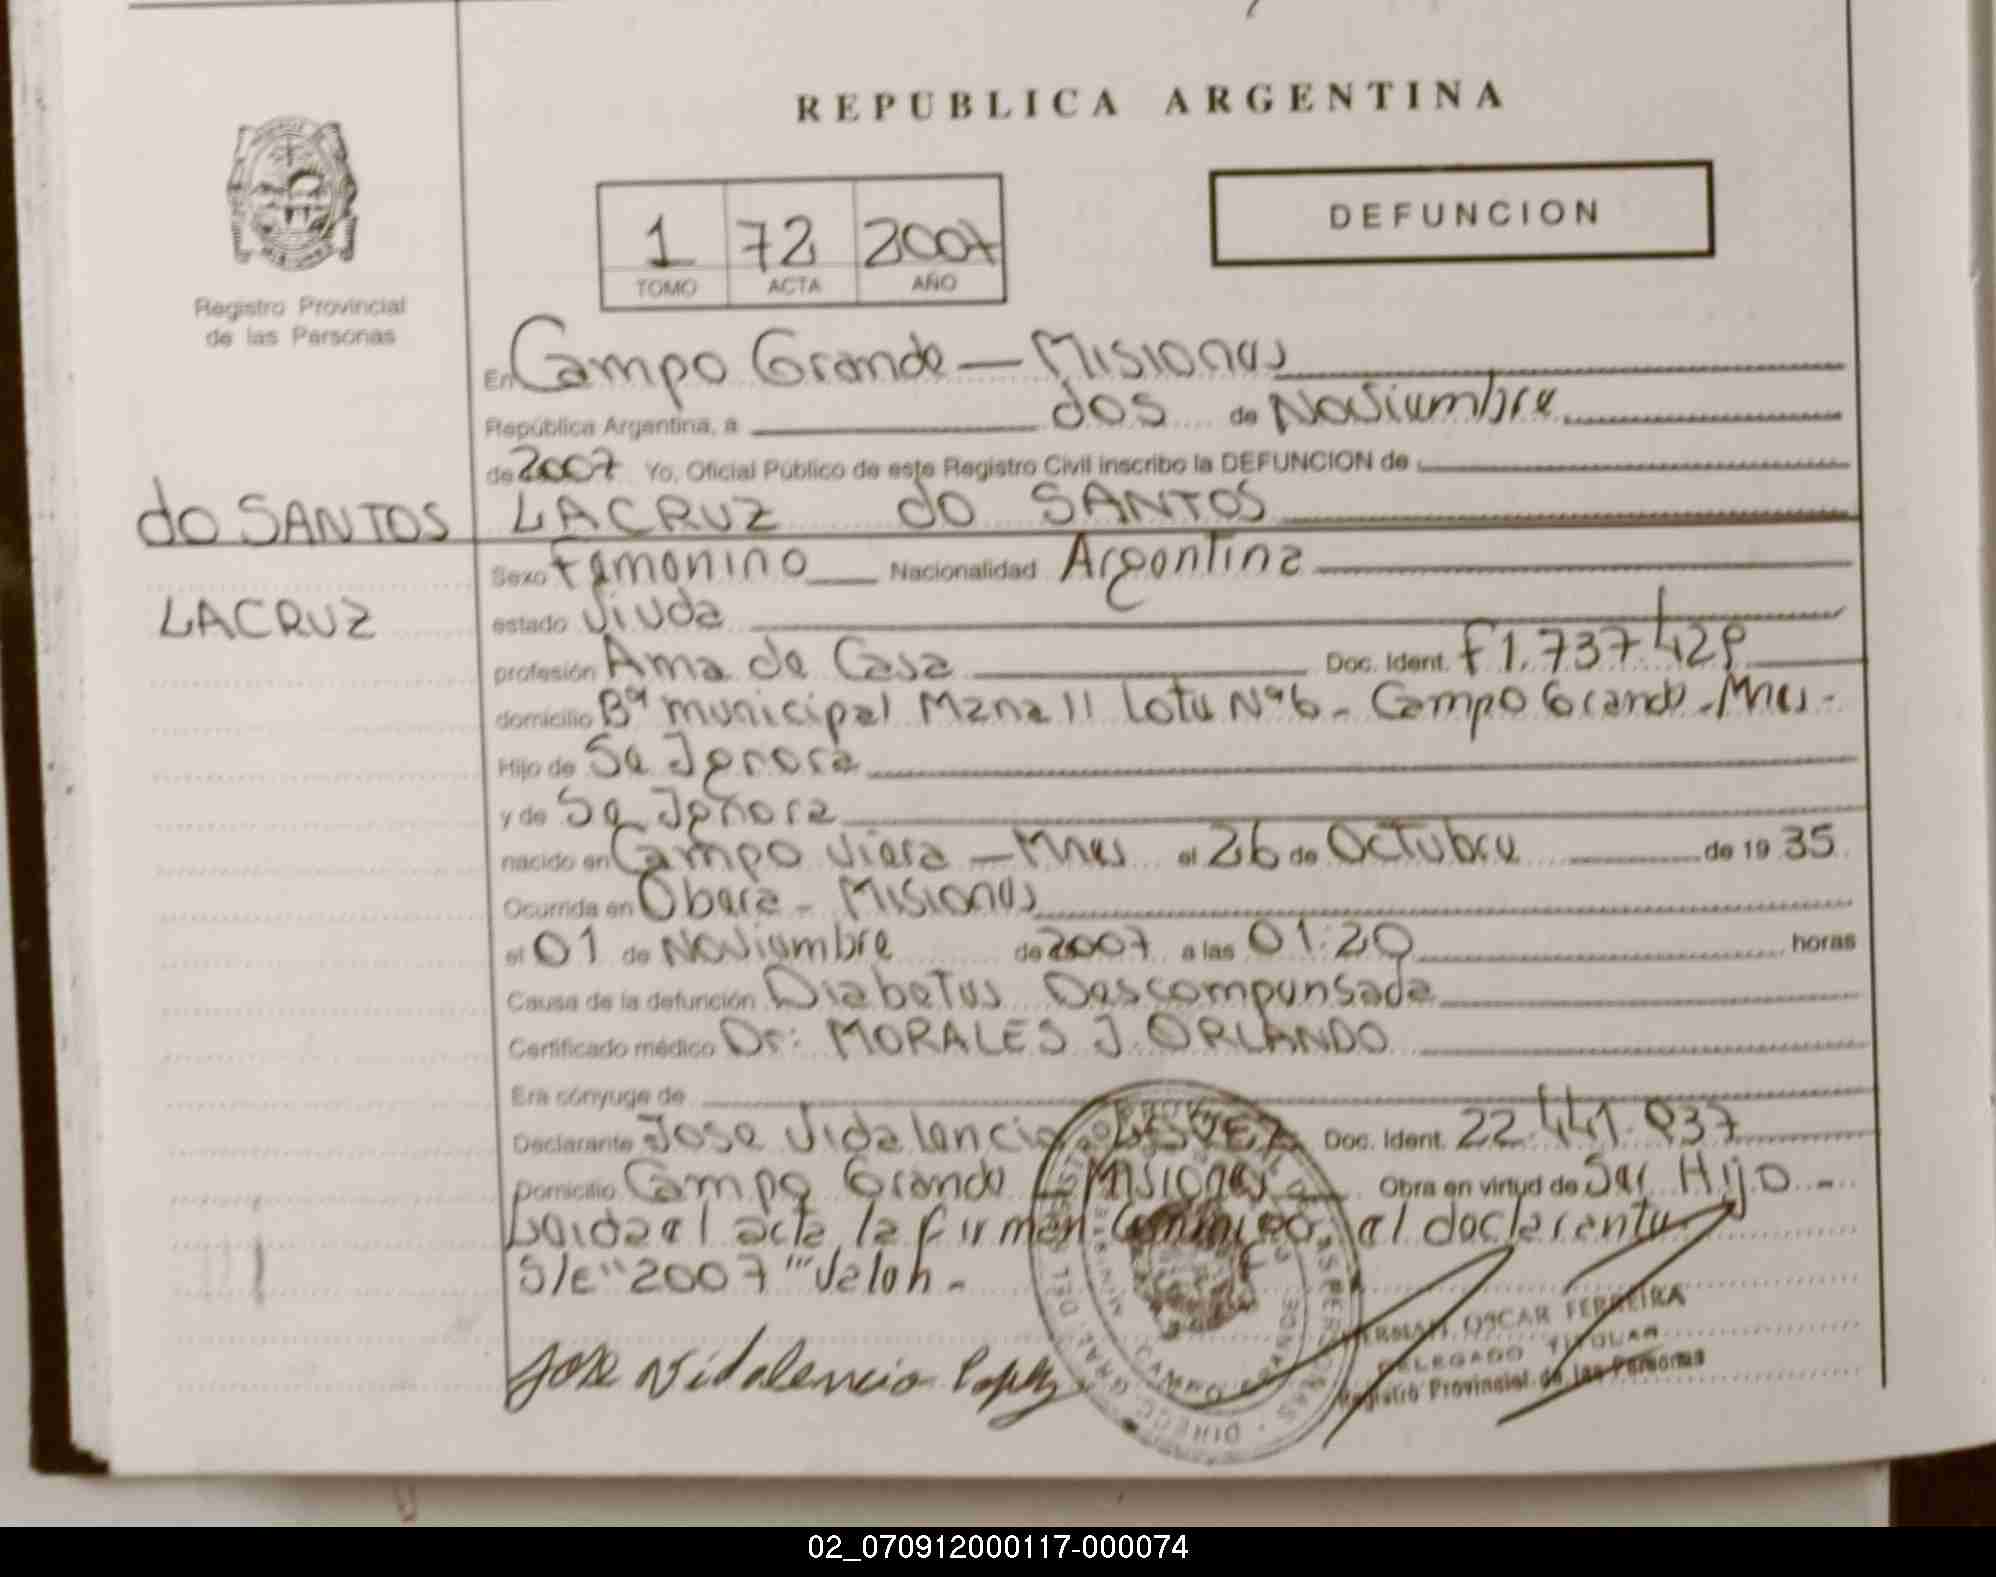 REPUBLICA ARGENTINA
DEFUNCION
1 72 2007
TOMO ACTA AÑO
Registro Provincial
de las Personas
En Campo Grande - Misiones
República Argentina, a dos de Noviembre
de 2007 Yo, Oficial Público de este Registro Civil inscribo la DEFUNCION de
do SANTOS
LACRUZ
LACRUZ do SANTOS
Sexo Femenino Nacionalidad Argentina
estado Viuda
profesión Ama de Casa Doc. Ident. F1.737.429
domicilio Bº municipal Mzna 11 Lote Nº 6 - Campo Grande - Mnes -
Hijo de Se Ignora
y de Se Ignora
nacido en Campo Viera - Mnes el 26 de Octubre de 19 35
Ocurrida en Obera - Misiones
el 01 de Noviembre de 2007 a las 01:20 horas
Causa de la defunción Diabetes Descompensada
Certificado médico Dr: MORALES J. ORLANDO
Era cónyuge de
Declarante Jose Vidalencio Doc. Ident. 22.441.937
Domicilio Campo Grande - Misiones Obra en virtud de Ser Hijo -
Leida el acta la firman Conmigo, al declarante.
S/E "2007" Valen -
Jose Vidalencio Lopez
OSCAR FERREIRA
DELEGADO TITULAR
Registro Provincial de las Personas
02_070912000117-000074